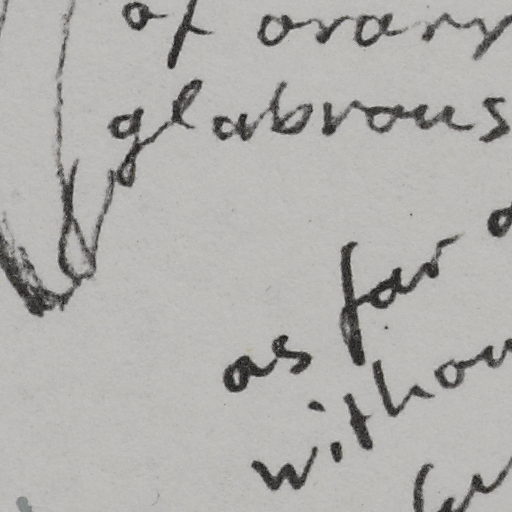 of ovary
glabrous
as far
without